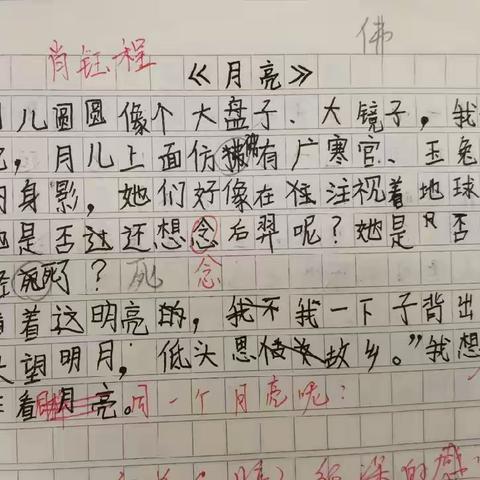 佛
肖钰程
《月亮》
儿圆圆像个大盘子、大镜子,我
,月儿上面仿佛有广寒宫、玉兔
身影,她们好像在注视着地球
她是否过还想念后羿呢?她是只否
死了?死 念
着这明亮的,我不我一下子背出
望明月,低头思故乡。”我想
看明月亮。同一个月亮呢?
的感